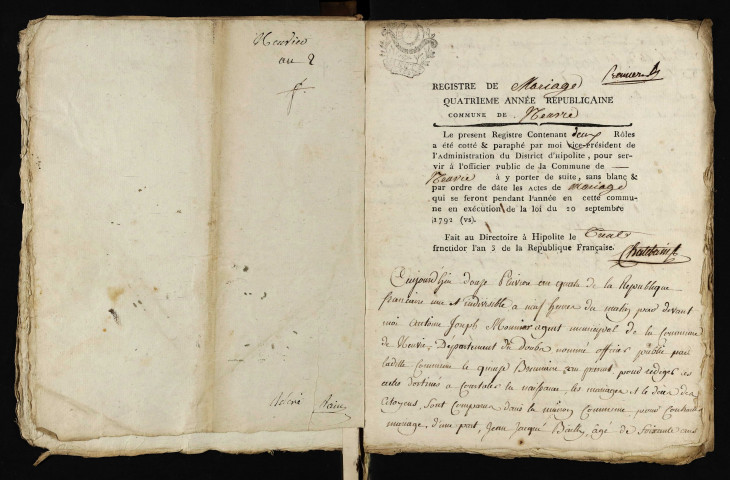 Neuvier
an 2
REGISTRE DE Mariage
QUATRIEME ANNÉE RÉPUBLICAINE
COMMUNE DE Neuvie
Le present Registre Contenant deux Rôles
a été cotté & paraphé par moi vice-président de
l'Administration du District d'ipolite, pour ser-
vir à l'officier public de la Commune de
Neuvie à y porter de suite, sans blanc &
par ordre de dâte les ACTES de mariage
qui se feront pendant l'année en cette commu-
ne en exécution de la loi du 20 septembre
1792 (vs).
Fait au Directoire à Hipolite le
fructidor l'an 3 de la Republique Française.
Aujourd'hui douze Pluviose en quatre de la Republique
francaise une et indivisible a neuf heures du matin, pard devant
moi antoine Joseph Mounier agent municipal de la Commune
de Neuvie, Département du Doubs nommé officier public par
ladite Commune le quinze Brumaire pour rediger les
actes destinés a Constater la naissance, les mariages et le décès des
Citoyens, sont Comparus dans la maison Commune pour Contracter
mariage, d'une part, Jean Jacque Bailly, agé de soixante ans